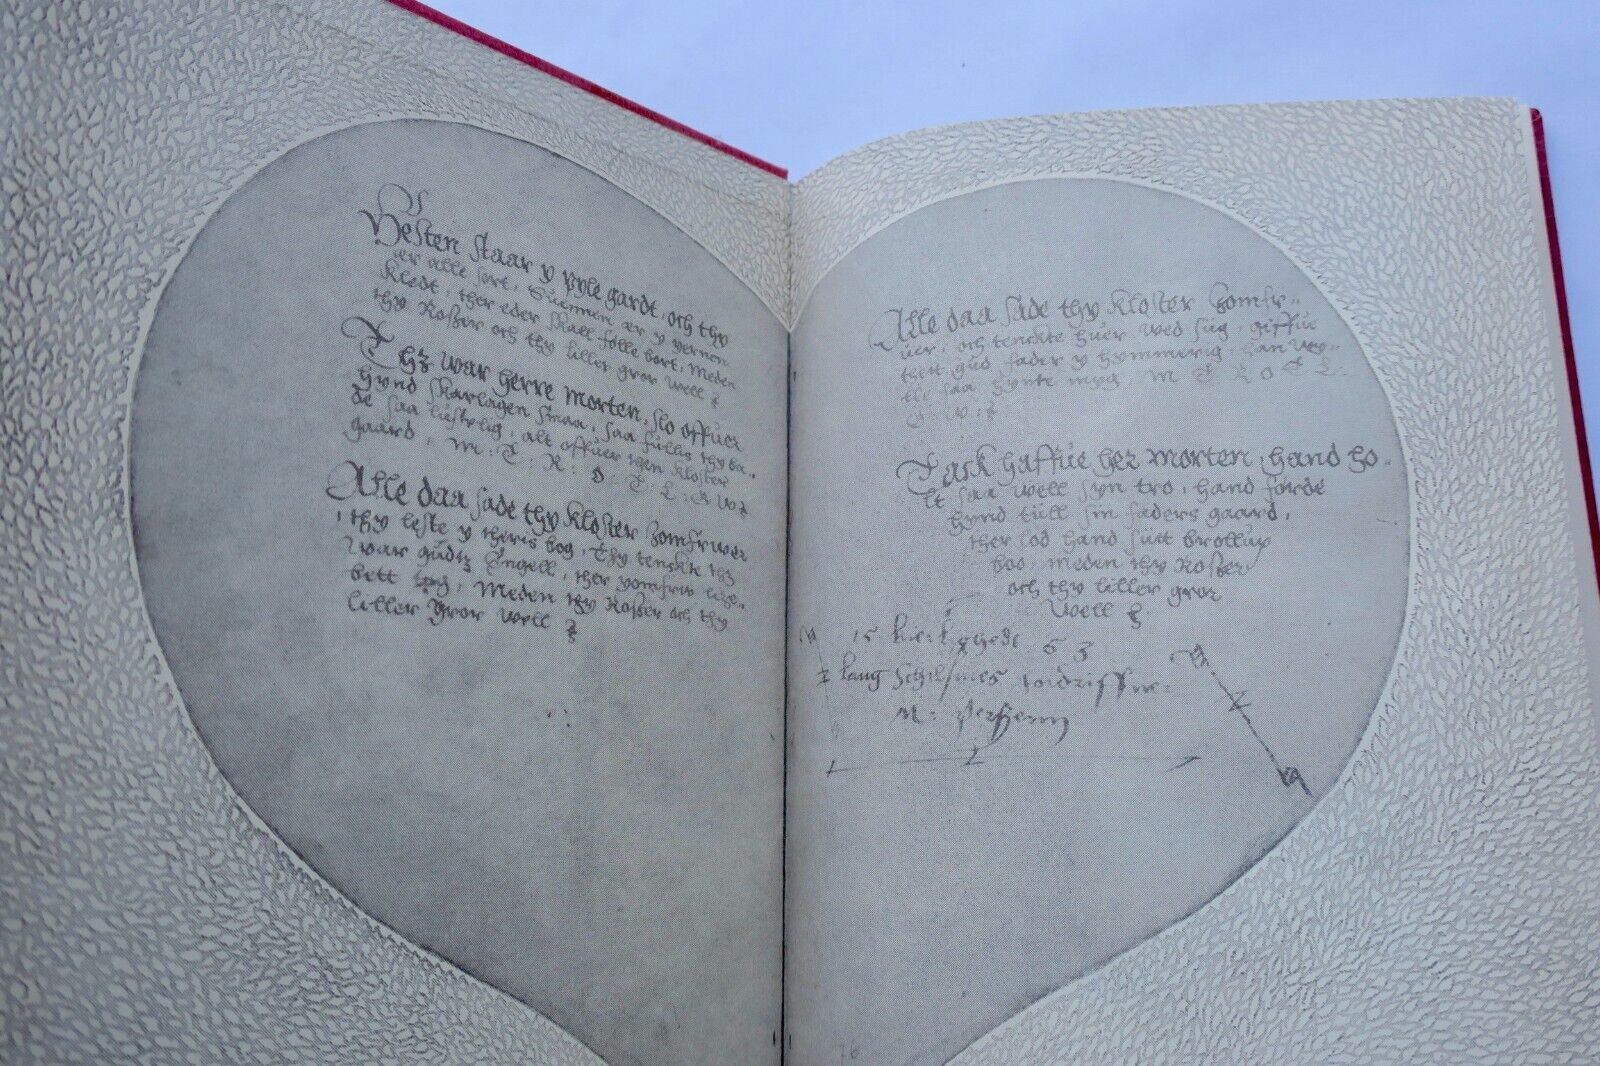 Hesten staar y Pyle gardt, och thy
ær alle sort, Suennen ær y vernen
kledt, ther eder skall følle bort, Meden
thy Roßer och thy liller gror well
Thz war herre morten, slo offuer
hynd skarlagen smaa, saa fullig thy
de saa lustelig, alt offuer then kloster
gaard, M: T: R: O: T: L: G W
Alle daa sade thy kloster Jomfruer
thy leste y theris bog, Thy tenckte thz
war gudtz Engell, ther jomfru
bett tog, Meden thy Roßer och thy
liller gror well
Alle daa sade thy kloster Jomfr-
uer, och tenckte huer wed sug, giffue
thett gud fader y hymmerig, han wy-
lle saa hynte myg, M T R O T L
G W
Tack haffue her morten, hand ho-
lt saa well syn tro, hand førde
hynd till sin faders gaard,
ther lod hand sitt brollup
boo, meden thy Roßer
och thy liller gror
well
15 63
lang
M:
76